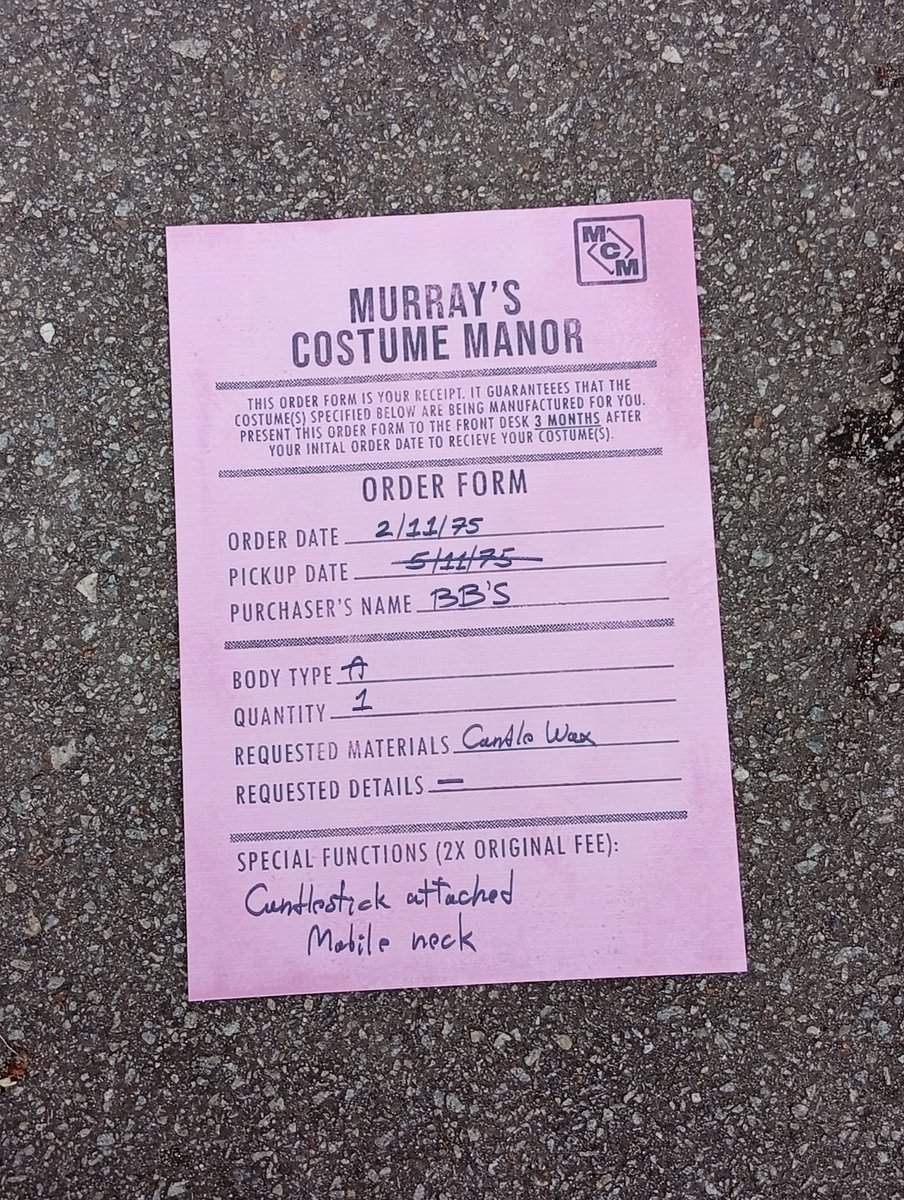 M
C
M
MURRAY'S
COSTUME MANOR
THIS ORDER FORM IS YOUR RECEIPT. IT GUARANTEEES THAT THE
COSTUME(S) SPECIFIED BELOW ARE BEING MANUFACTURED FOR YOU.
PRESENT THIS ORDER FORM TO THE FRONT DESK 3 MONTHS AFTER
YOUR INITAL ORDER DATE TO RECIEVE YOUR COSTUME(S).
ORDER FORM
ORDER DATE 2/11/75
PICKUP DATE 5/11/75
PURCHASER'S NAME BB'S
BODY TYPE A
QUANTITY 1
REQUESTED MATERIALS Candle Wax
REQUESTED DETAILS —
SPECIAL FUNCTIONS (2X ORIGINAL FEE):
Candlestick attached
Mobile neck